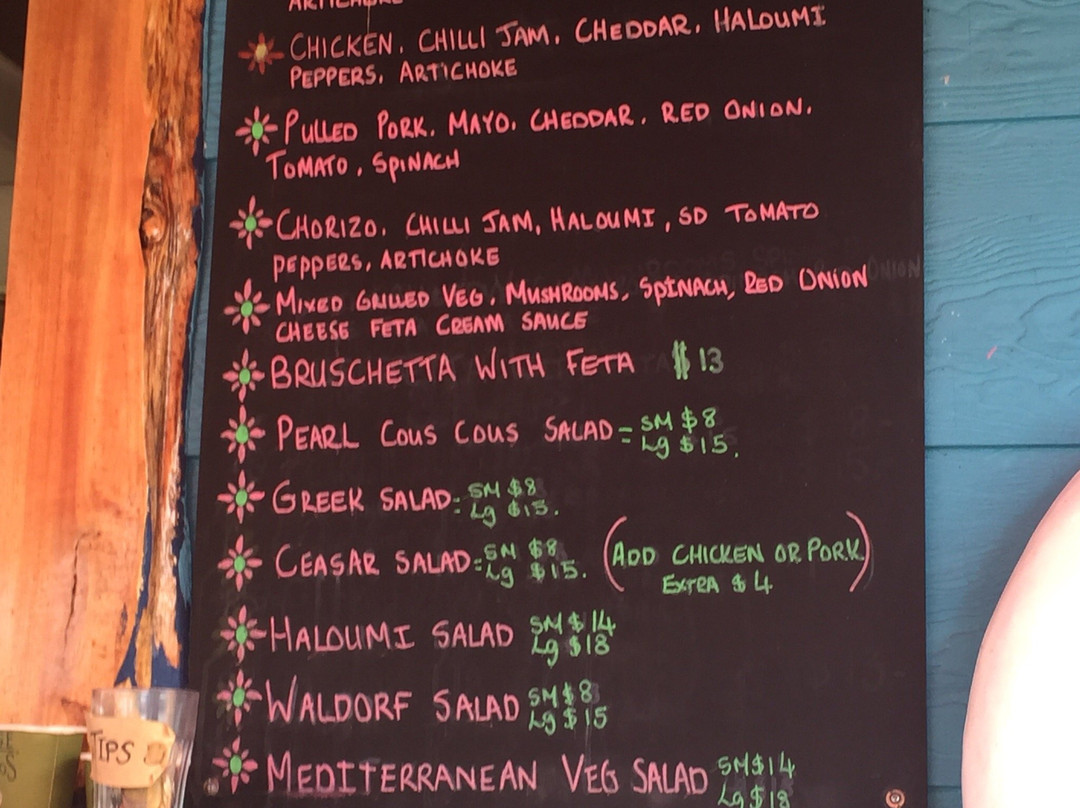 ARTICHOKE
CHICKEN, CHILLI JAM, CHEDDAR, HALOUMI
PEPPERS, ARTICHOKE
PULLED PORK, MAYO, CHEDDAR, RED ONION,
TOMATO, SPINACH
CHORIZO, CHILLI JAM, HALOUMI, SD TOMATO
PEPPERS, ARTICHOKE
MIXED GRILLED VEG, MUSHROOMS, SPINACH, RED ONION
CHEESE FETA CREAM SAUCE
BRUSCHETTA WITH FETA $13
PEARL COUS COUS SALAD = SM $8
Lg $15.
GREEK SALAD = SM $8
Lg $15.
CEASAR SALAD = SM $8
Lg $15.
(ADD CHICKEN OR PORK
EXTRA $4)
HALOUMI SALAD SM $14
Lg $18
WALDORF SALAD SM $8
Lg $15
MEDITERRANEAN VEG SALAD SM $14
Lg $18
TIPS